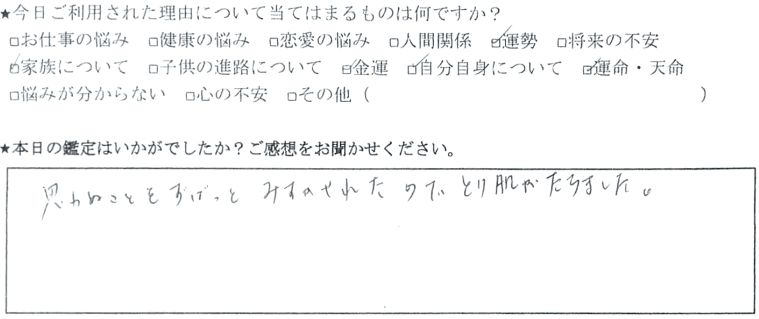 ★今日ご利用された理由について当てはまるものは何ですか？
□お仕事の悩み □健康の悩み □恋愛の悩み □人間関係 ☑運勢 □将来の不安
☑家族について □子供の進路について ☑金運 ☑自分自身について ☑運命・天命
□悩みが分からない □心の不安 □その他（ ）
★本日の鑑定はいかがでしたか？ご感想をお聞かせください。
思わぬことをずばっと みすかされたので、とり肌がたちました。